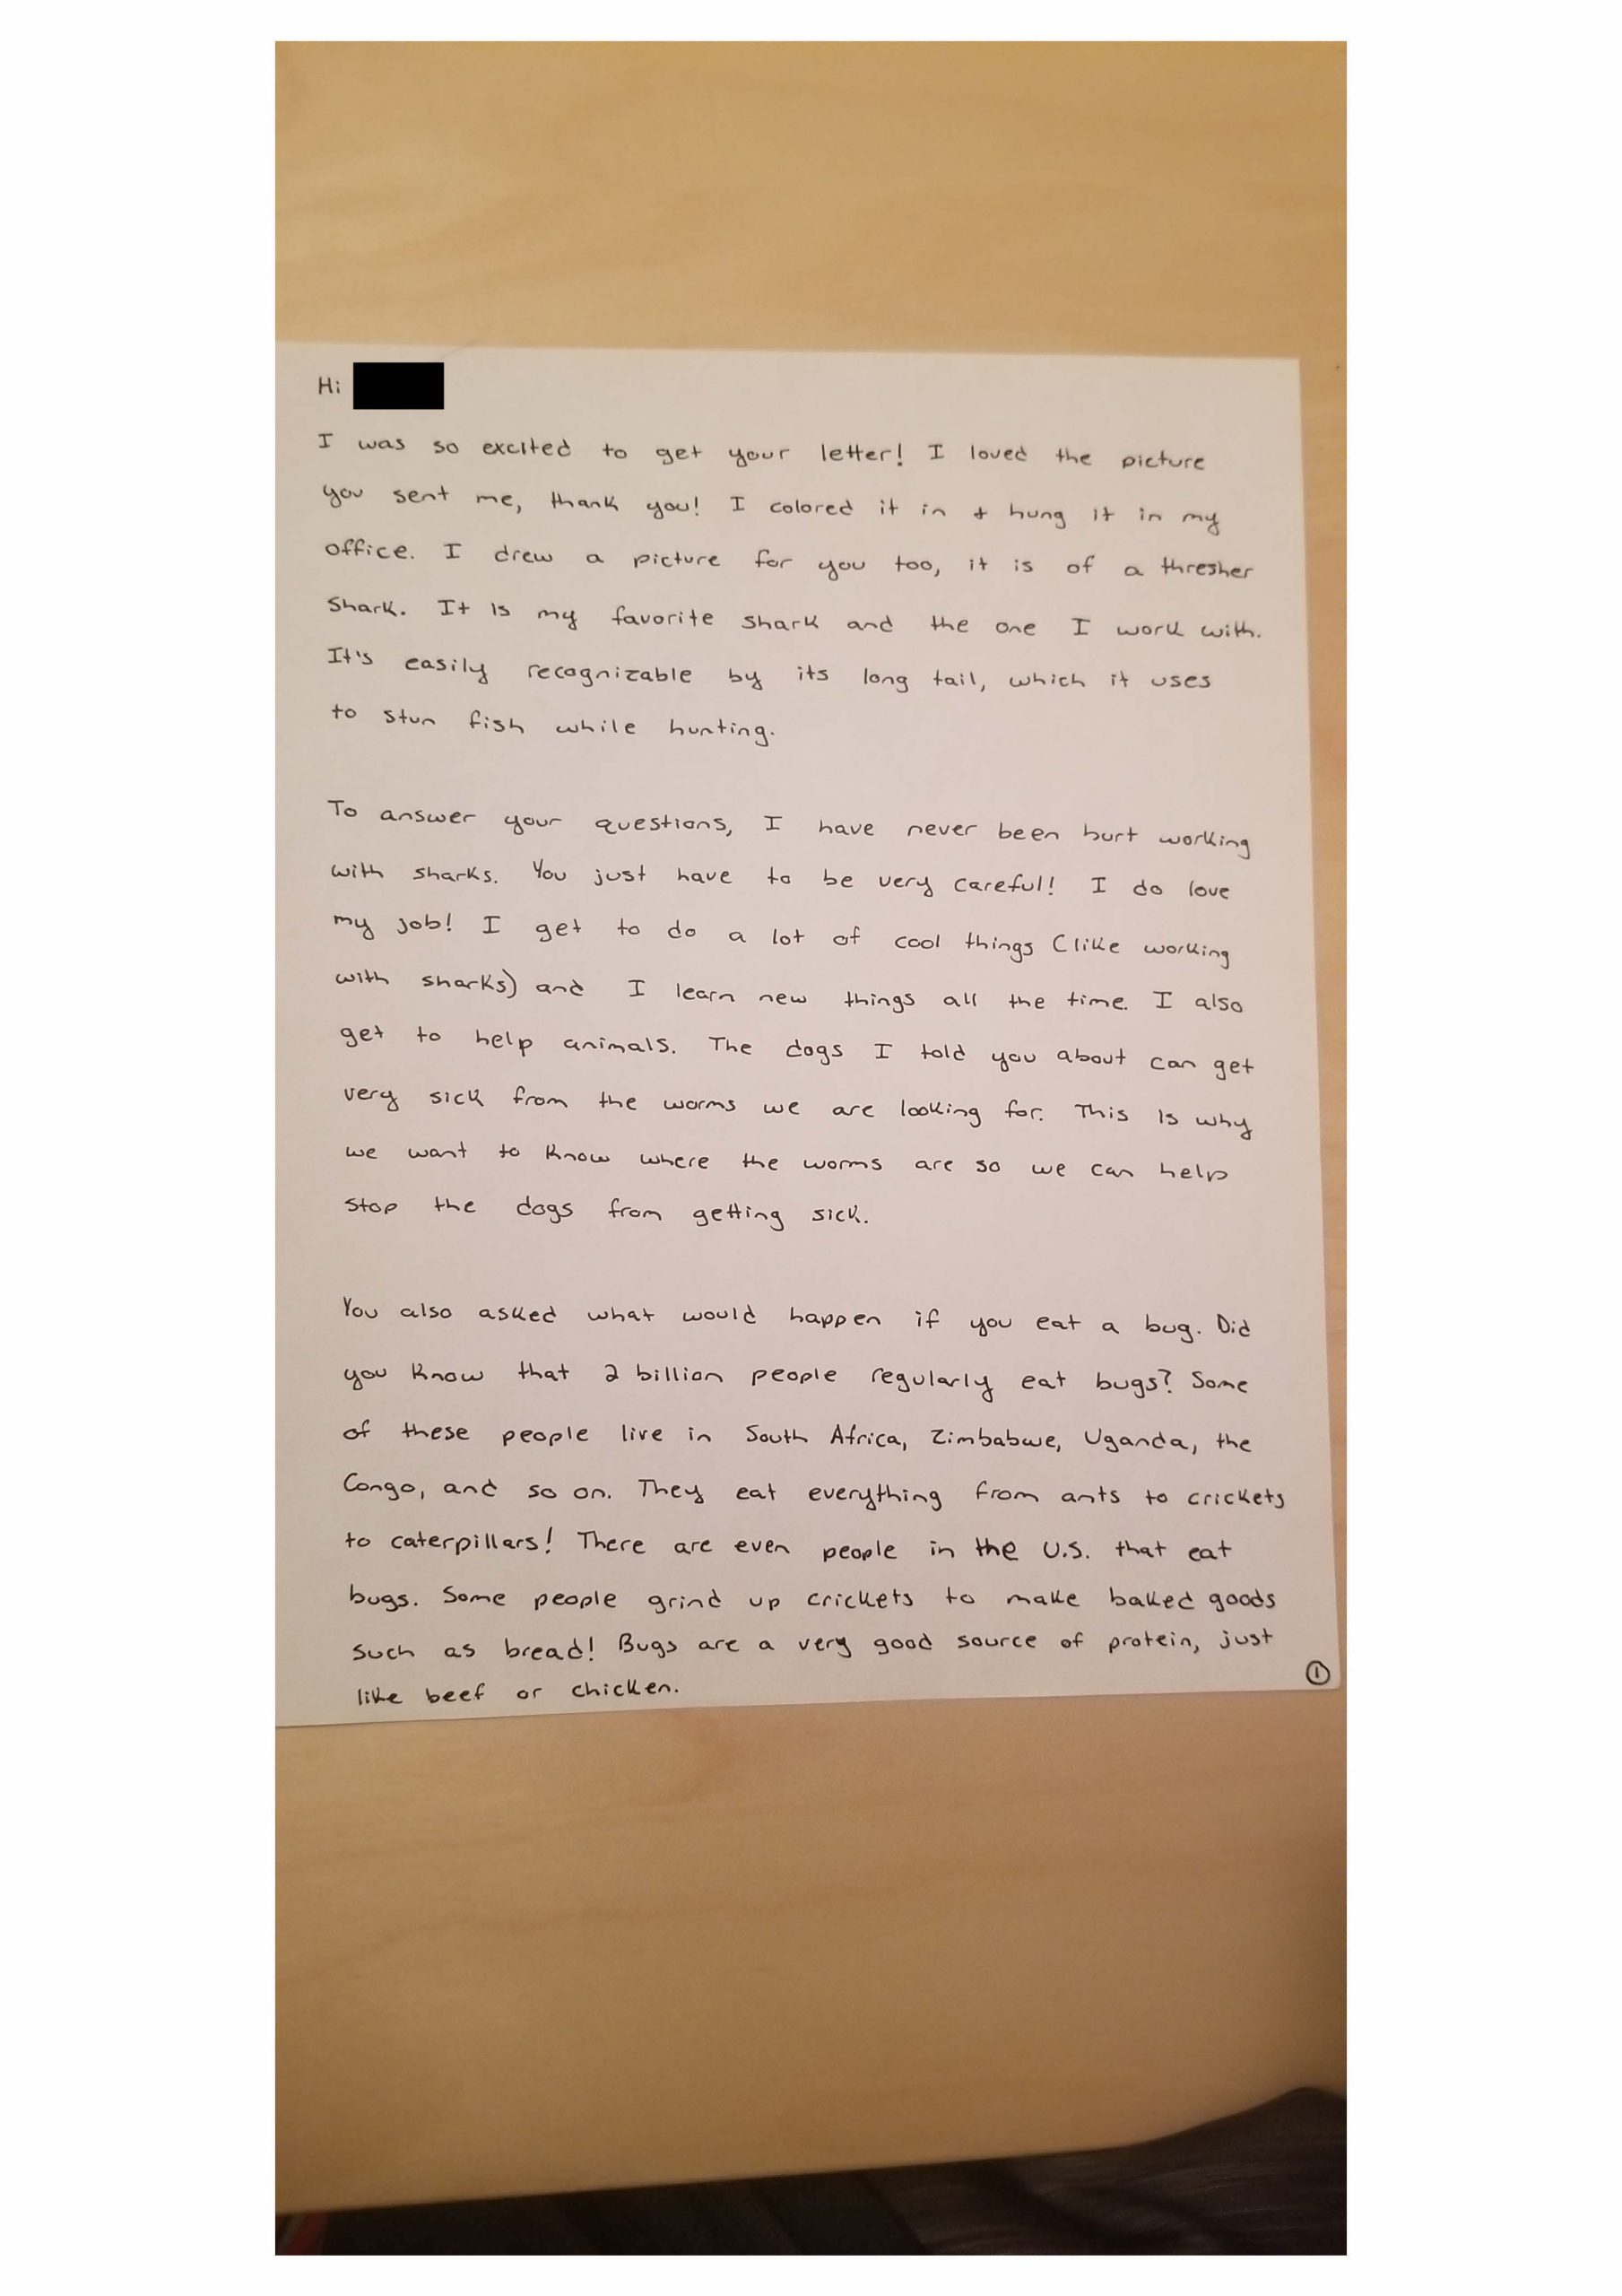 Hi
I was so excited to get your letter! I loved the picture
you sent me, thank you! I colored it in + hung it in my
office. I drew a picture for you too, it is of a thresher
Shark. It is my favorite shark and the one I work with.
It's easily recognizable by its long tail, which it uses
to stun fish while hunting.
To answer your questions, I have never been hurt working
with sharks. You just have to be very careful! I do love
my job! I get to do a lot of cool things (like working
with sharks) and I learn new things all the time. I also
get to help animals. The dogs I told you about can get
very sick from the worms we are looking for. This is why
we want to know where the worms are so we can help
stop the dogs from getting sick.
You also asked what would happen if you eat a bug. Did
you know that 2 billion people regularly eat bugs? Some
of these people live in South Africa, Zimbabwe, Uganda, the
Congo, and so on. They eat everything from ants to crickets
to caterpillars! There are even people in the U.S. that eat
bugs. Some people grind up crickets to make baked goods
such as bread! Bugs are a very good source of protein, just
like beef or chicken.
1